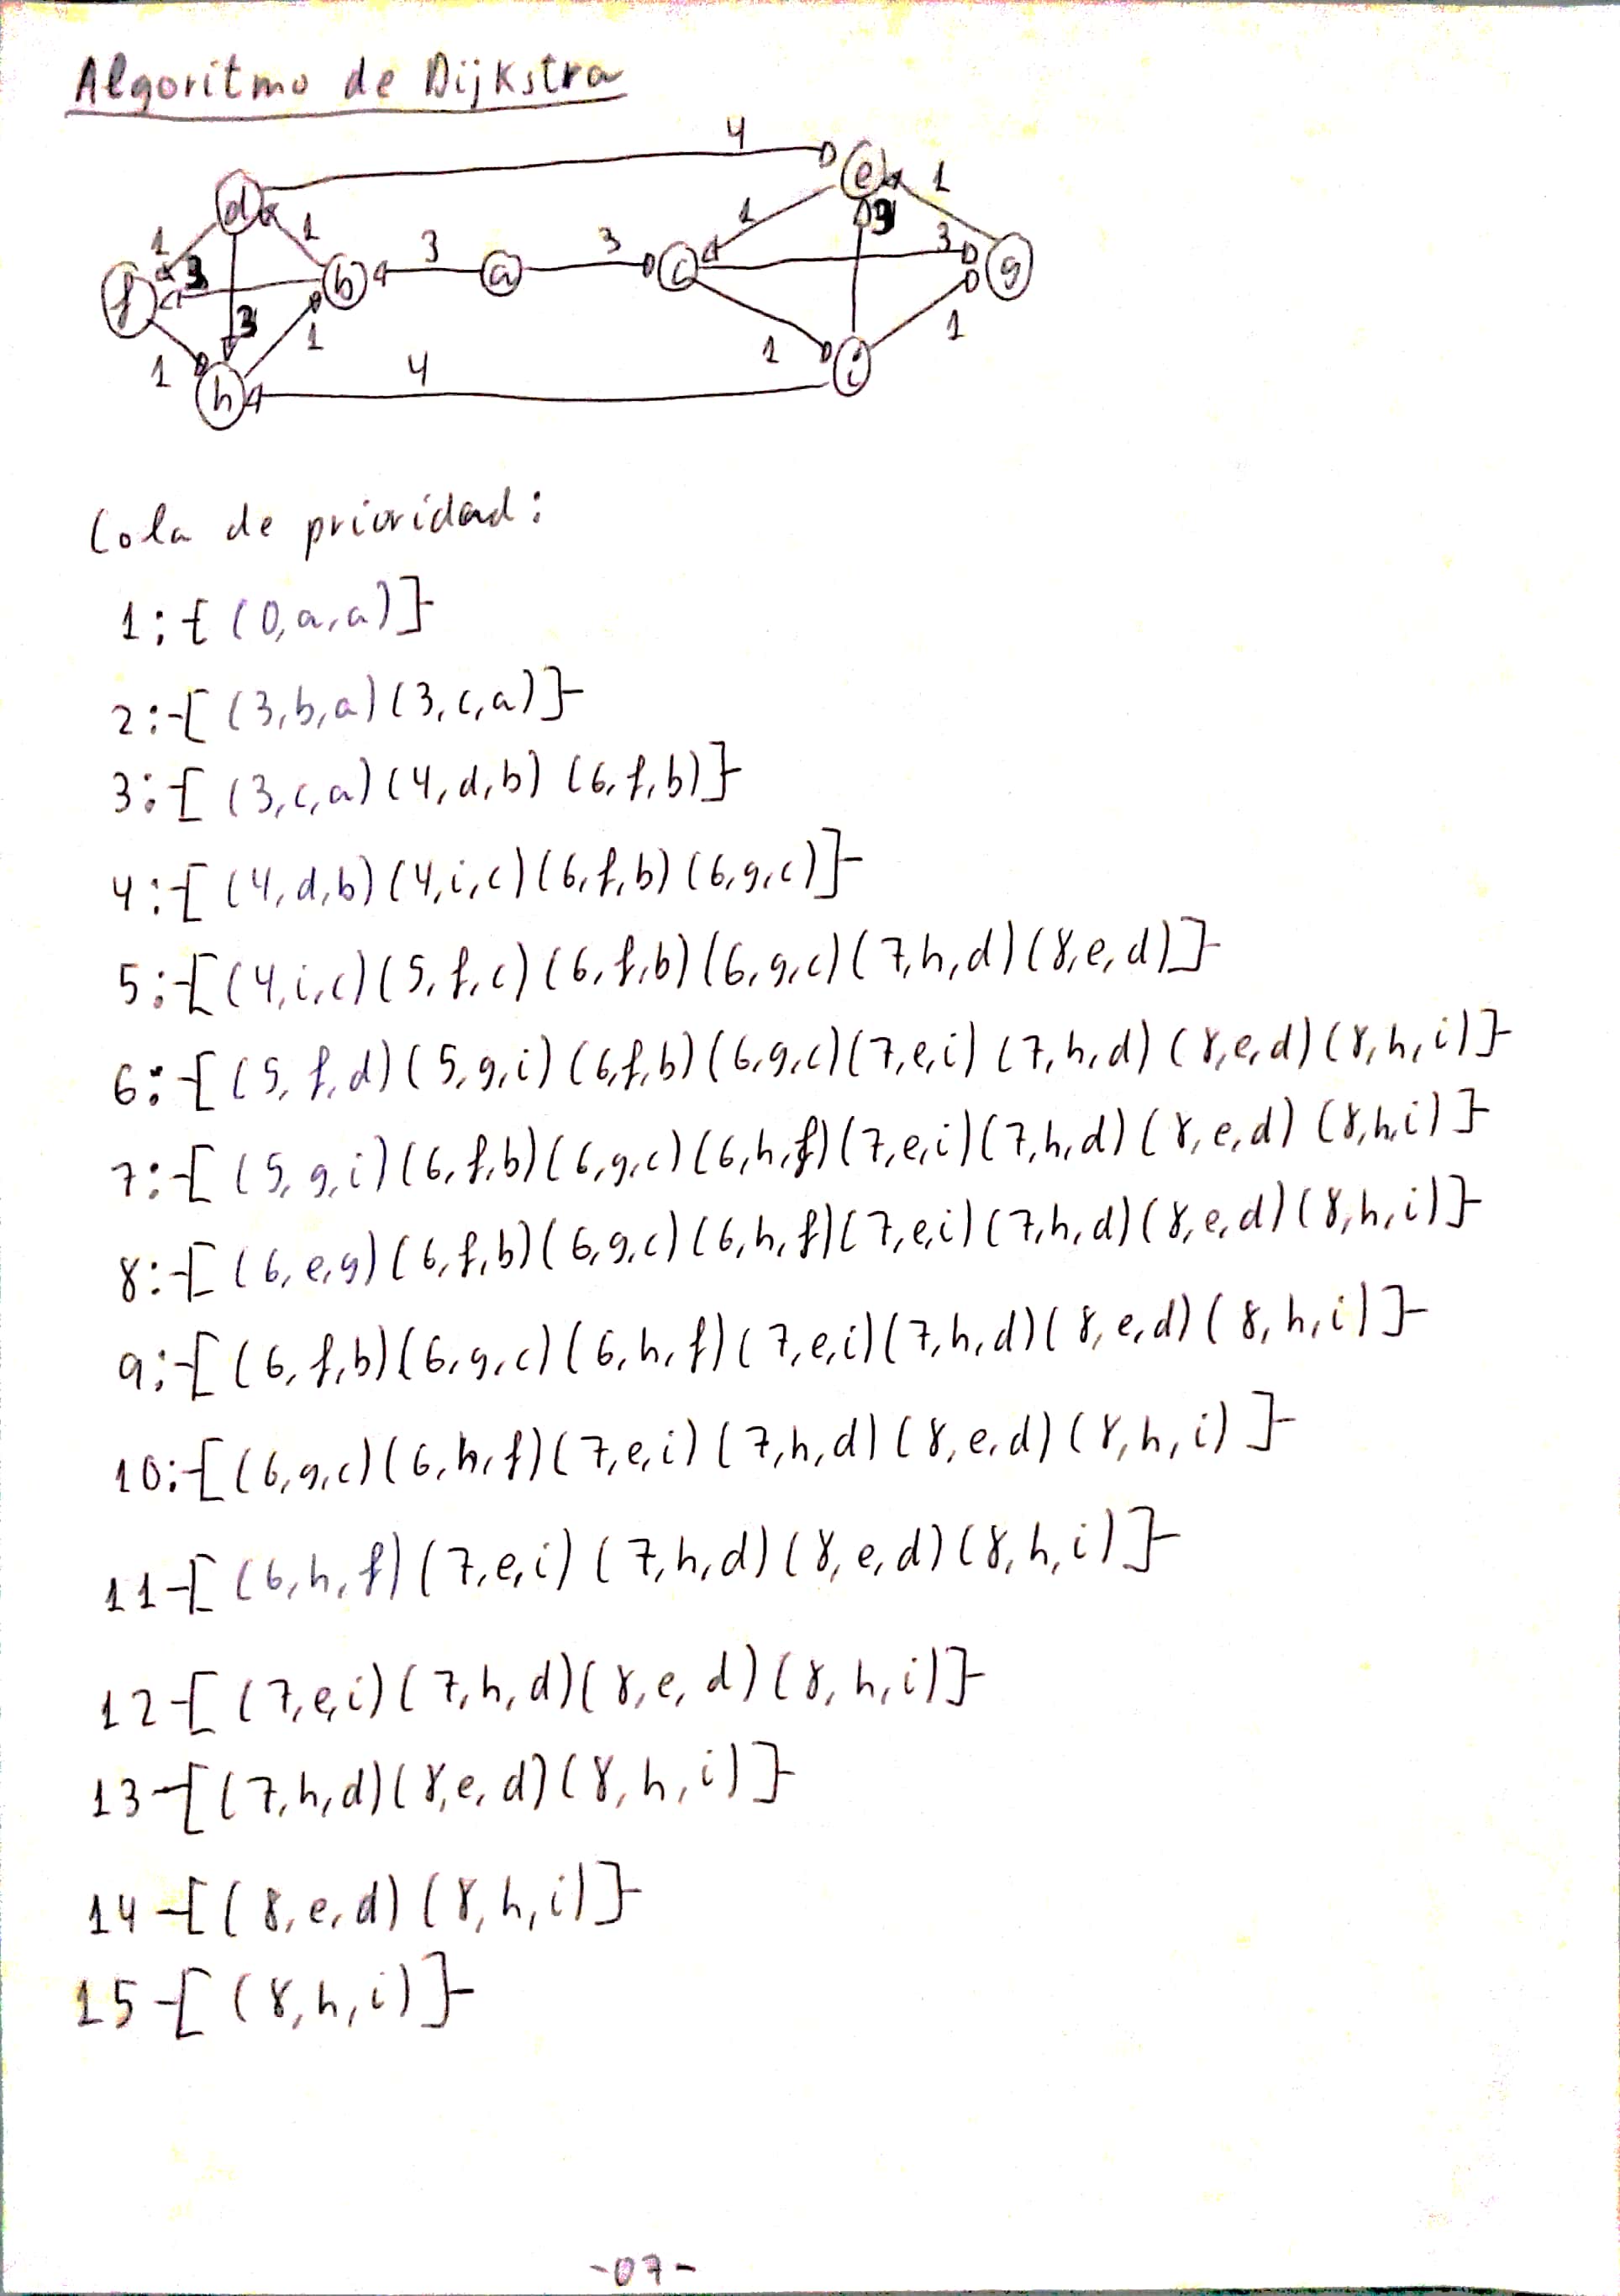 Algoritmo de Dijkstra
4
d e 1
1 1 1 3
3 3 3 3
f b a c g
3 1 1
1 4 1
h i
Cola de prioridad:
1:{(0,a,a)}
2:{(3,b,a)(3,c,a)}
3:{(3,c,a)(4,d,b)(6,f,b)}
4:{(4,d,b)(4,i,c)(6,f,b)(6,g,c)}
5:{(4,i,c)(5,f,c)(6,f,b)(6,g,c)(7,h,d)(8,e,d)}
6:{(5,f,d)(5,g,i)(6,f,b)(6,g,c)(7,e,i)(7,h,d)(8,e,d)(8,h,i)}
7:{(5,g,i)(6,f,b)(6,g,c)(6,h,f)(7,e,i)(7,h,d)(8,e,d)(8,h,i)}
8:{(6,e,g)(6,f,b)(6,g,c)(6,h,f)(7,e,i)(7,h,d)(8,e,d)(8,h,i)}
9:{(6,f,b)(6,g,c)(6,h,f)(7,e,i)(7,h,d)(8,e,d)(8,h,i)}
10:{(6,g,c)(6,h,f)(7,e,i)(7,h,d)(8,e,d)(8,h,i)}
11{(6,h,f)(7,e,i)(7,h,d)(8,e,d)(8,h,i)}
12{(7,e,i)(7,h,d)(8,e,d)(8,h,i)}
13{(7,h,d)(8,e,d)(8,h,i)}
14{(8,e,d)(8,h,i)}
15{(8,h,i)}
-07-